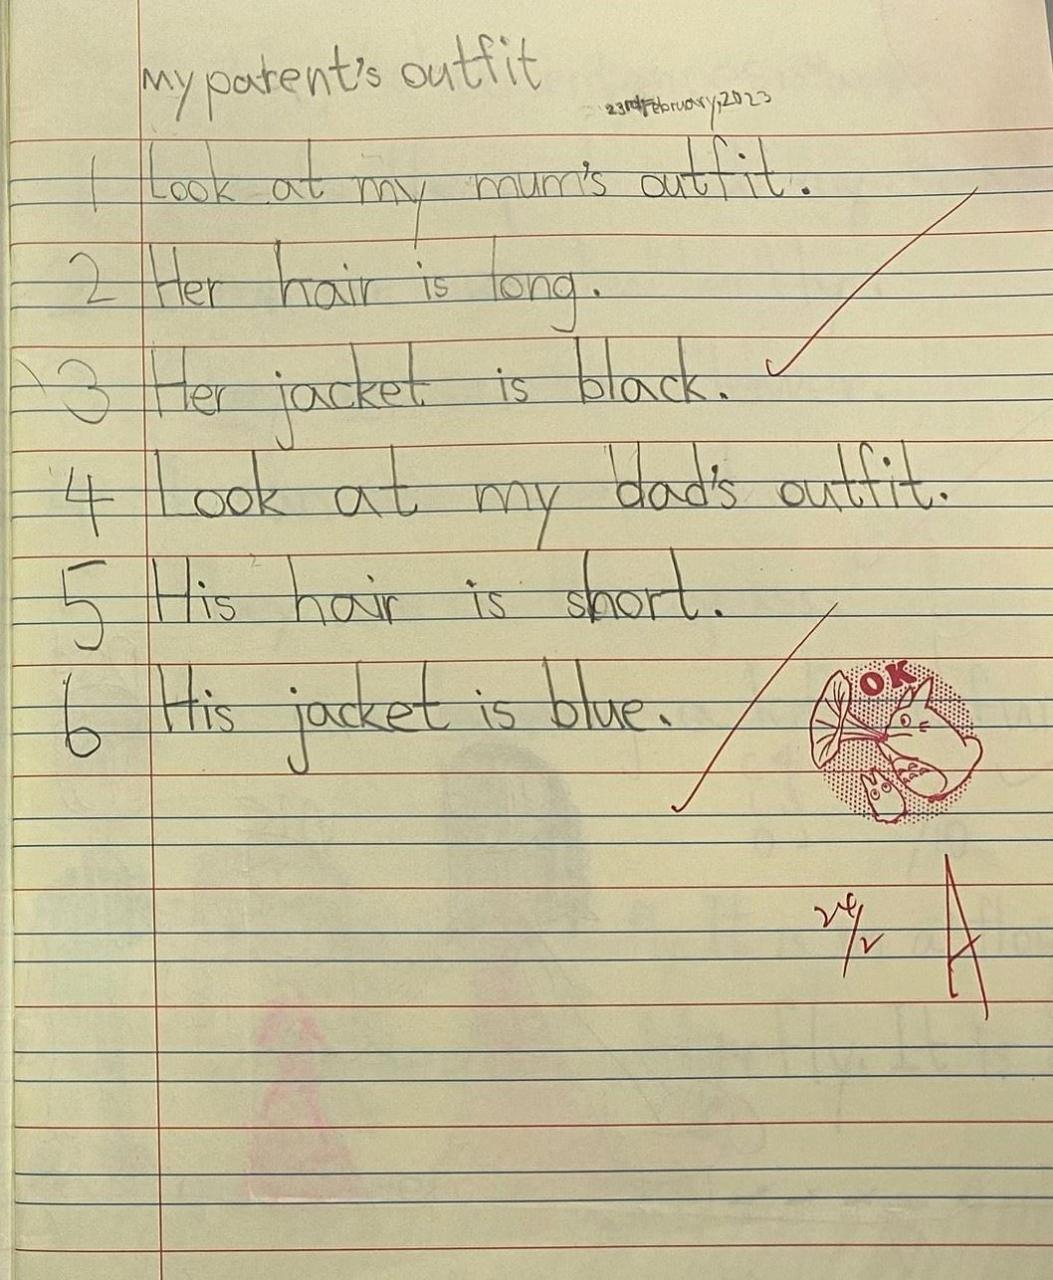 my parent's outfit
23rd February, 2023
1 Look at my mum's outfit.
2 Her hair is long.
3 Her jacket is black.
4 Look at my dad's outfit.
5 His hair is short.
6 His jacket is blue.
OK
24/2 A